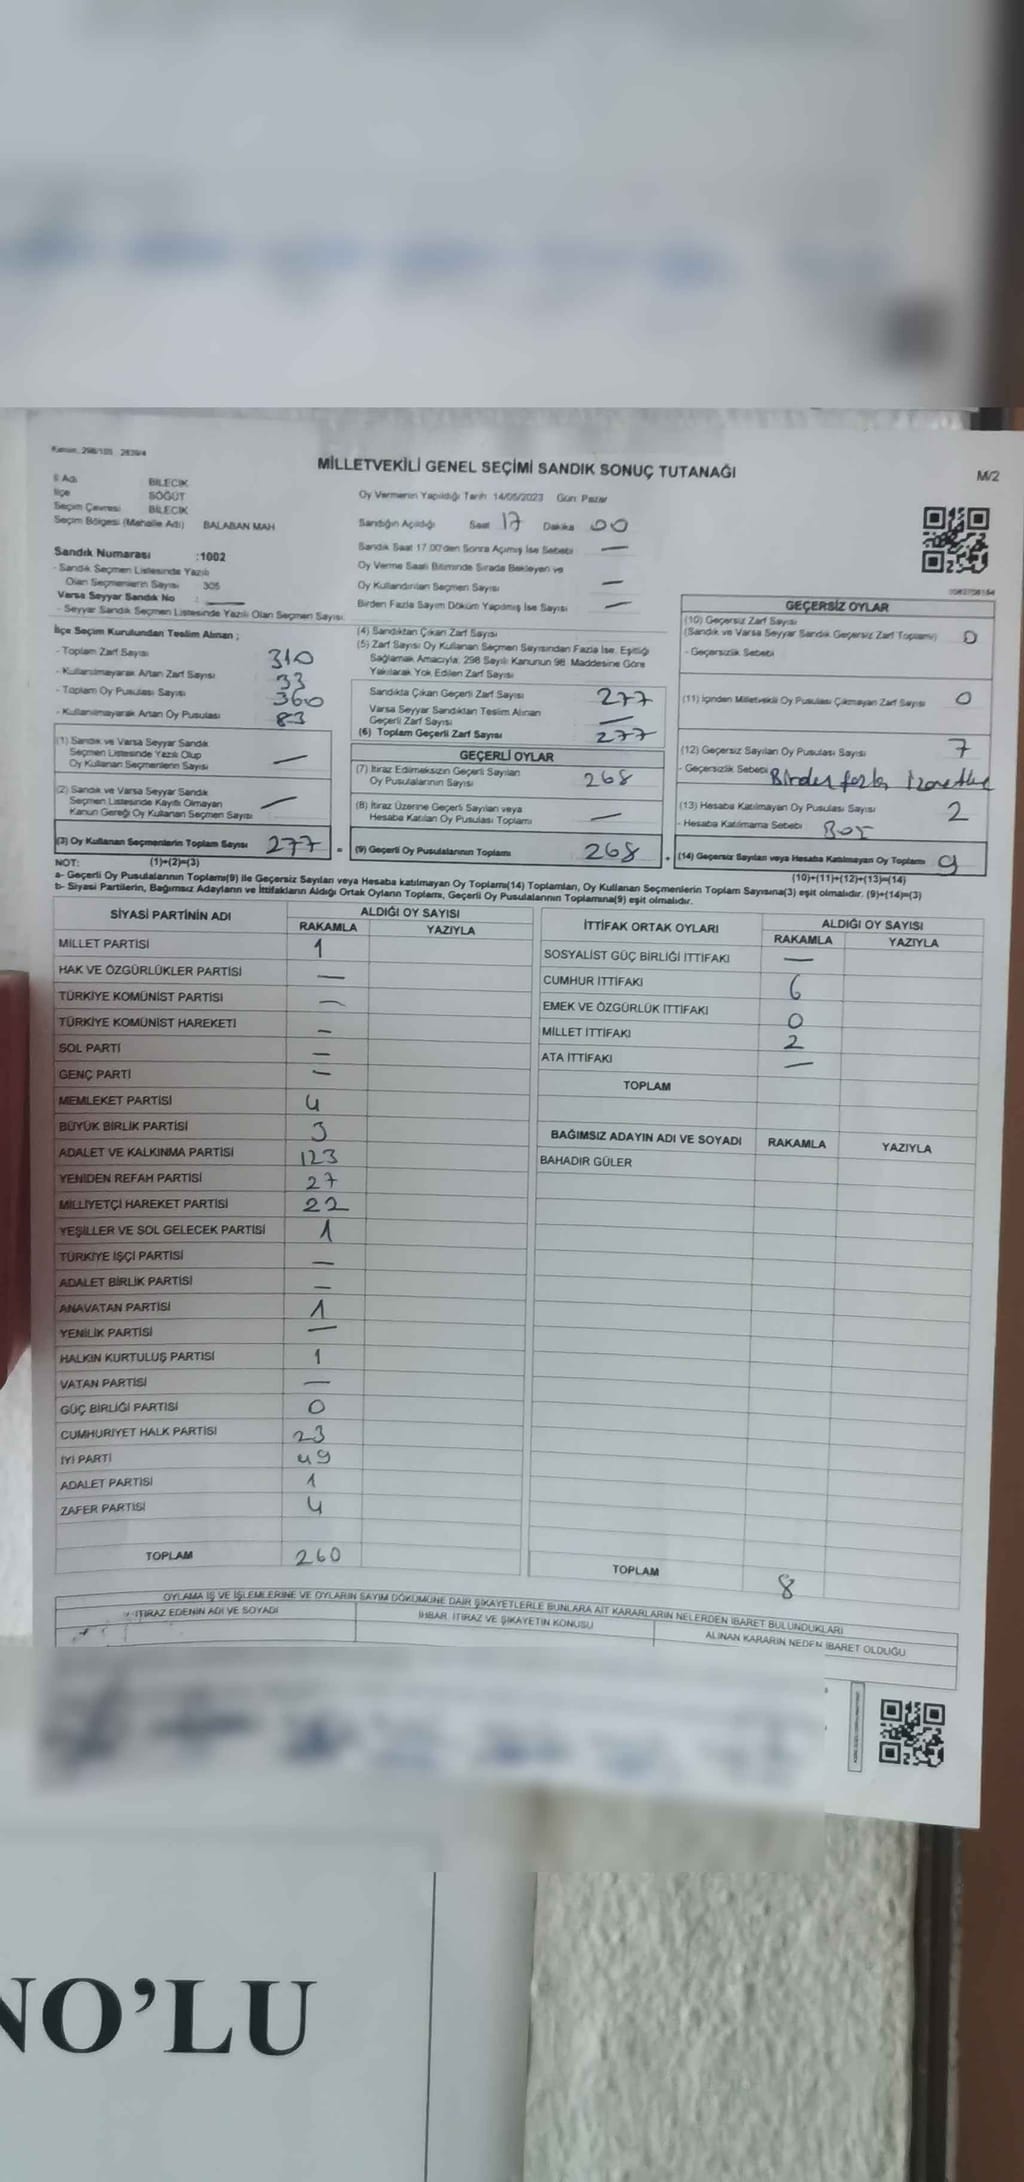 Kanun, 298/105 2839/4
MİLLETVEKİLİ GENEL SEÇİMİ SANDIK SONUÇ TUTANAĞI
M/2
İl Adı BİLECİK
İlçe SÖĞÜT
Seçim Çevresi BİLECİK
Seçim Bölgesi (Mahalle Adı) BALABAN MAH
Oy Vermenin Yapıldığı Tarih 14/05/2023 Gün: Pazar
Sandığın Açıldığı Saat 17 Dakika 00
Sandık Saat 17.00'den Sonra Açımış İse Sebebi —
Oy Verme Saati Bitiminde Sırada Bekleyen ve
Oy Kullandırılan Seçmen Sayısı —
Birden Fazla Sayım Döküm Yapılmış İse Sayısı —
Sandık Numarası :1002
- Sandık Seçmen Listesinde Yazılı
Olan Seçmenlerin Sayısı 305
Varsa Seyyar Sandık No :
- Seyyar Sandık Seçmen Listesinde Yazılı Olan Seçmen Sayısı
İlçe Seçim Kurulundan Teslim Alınan ;
- Toplam Zarf Sayısı 310
- Kullanılmayarak Artan Zarf Sayısı 33
- Toplam Oy Pusulası Sayısı 360
- Kullanılmayarak Artan Oy Pusulası 83
(1) Sandık ve Varsa Seyyar Sandık
Seçmen Listesinde Yazılı Olup
Oy Kullanan Seçmenlerin Sayısı —
(2) Sandık ve Varsa Seyyar Sandık
Seçmen Listesinde Kayıtlı Olmayan
Kanun Gereği Oy Kullanan Seçmen Sayısı —
(3) Oy Kullanan Seçmenlerin Toplam Sayısı 277
(4) Sandıktan Çıkan Zarf Sayısı
(5) Zarf Sayısı Oy Kullanan Seçmen Sayısından Fazla İse, Eşitliği
Sağlamak Amacıyla; 298 Sayılı Kanunun 98. Maddesine Göre
Yakılarak Yok Edilen Zarf Sayısı
Sandıkta Çıkan Geçerli Zarf Sayısı 277
Varsa Seyyar Sandıktan Teslim Alınan
Geçerli Zarf Sayısı —
(6) Toplam Geçerli Zarf Sayısı 277
GEÇERLİ OYLAR
(7) İtiraz Edilmeksizin Geçerli Sayılan
Oy Pusulalarının Sayısı 268
(8) İtiraz Üzerine Geçerli Sayılan veya
Hesaba Katılan Oy Pusulası Toplamı —
(9) Geçerli Oy Pusulalarının Toplamı 268
GEÇERSİZ OYLAR
(10) Geçersiz Zarf Sayısı
(Sandık ve Varsa Seyyar Sandık Geçersiz Zarf Toplamı) 0
- Geçersizlik Sebebi
(11) İçinden Milletvekili Oy Pusulası Çıkmayan Zarf Sayısı 0
(12) Geçersiz Sayılan Oy Pusulası Sayısı 7
- Geçersizlik Sebebi Birden fazla
(13) Hesaba Katılmayan Oy Pusulası Sayısı 2
- Hesaba Katılmama Sebebi Boş
(14) Geçersiz Sayılan veya Hesaba Katılmayan Oy Toplamı 9
NOT: (1)+(2)=(3)
(10)+(11)+(12)+(13)=(14)
a- Geçerli Oy Pusulalarının Toplamı(9) ile Geçersiz Sayılan veya Hesaba katılmayan Oy Toplamı(14) Toplamları, Oy Kullanan Seçmenlerin Toplam Sayısına(3) eşit olmalıdır. (9)+(14)=(3)
b- Siyasi Partilerin, Bağımsız Adayların ve İttifakların Aldığı Ortak Oyların Toplamı, Geçerli Oy Pusulalarının Toplamına(9) eşit olmalıdır.
SİYASİ PARTİNİN ADI ALDIĞI OY SAYISI
RAKAMLA YAZIYLA
MİLLET PARTİSİ 1
HAK VE ÖZGÜRLÜKLER PARTİSİ —
TÜRKİYE KOMÜNİST PARTİSİ —
TÜRKİYE KOMÜNİST HAREKETİ —
SOL PARTİ —
GENÇ PARTİ —
MEMLEKET PARTİSİ 4
BÜYÜK BİRLİK PARTİSİ 3
ADALET VE KALKINMA PARTİSİ 123
YENİDEN REFAH PARTİSİ 27
MİLLİYETÇİ HAREKET PARTİSİ 22
YEŞİLLER VE SOL GELECEK PARTİSİ 1
TÜRKİYE İŞÇİ PARTİSİ —
ADALET BİRLİK PARTİSİ —
ANAVATAN PARTİSİ 1
YENİLİK PARTİSİ —
HALKIN KURTULUŞ PARTİSİ 1
VATAN PARTİSİ —
GÜÇ BİRLİĞİ PARTİSİ 0
CUMHURİYET HALK PARTİSİ 23
İYİ PARTİ 49
ADALET PARTİSİ 1
ZAFER PARTİSİ 4
TOPLAM 260
İTTİFAK ORTAK OYLARI ALDIĞI OY SAYISI
RAKAMLA YAZIYLA
SOSYALİST GÜÇ BİRLİĞİ İTTİFAKI —
CUMHUR İTTİFAKI 6
EMEK VE ÖZGÜRLÜK İTTİFAKI 0
MİLLET İTTİFAKI 2
ATA İTTİFAKI —
TOPLAM
BAĞIMSIZ ADAYIN ADI VE SOYADI RAKAMLA YAZIYLA
BAHADIR GÜLER
TOPLAM 8
OYLAMA İŞ VE İŞLEMLERİNE VE OYLARIN SAYIM DÖKÜMÜNE DAİR ŞİKAYETLERLE BUNLARA AİT KARARLARIN NELERDEN İBARET BULUNDUKLARI
İTİRAZ EDENİN ADI VE SOYADI
İHBAR, İTİRAZ VE ŞİKAYETİN KONUSU
ALINAN KARARIN NEDEN İBARET OLDUĞU
NO'LU